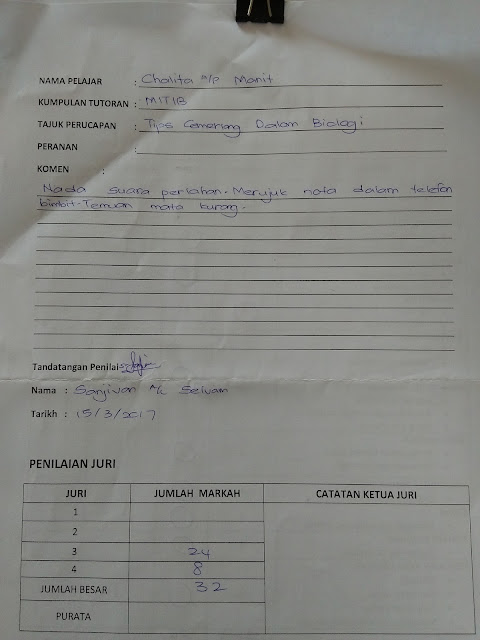 NAMA PELAJAR : Chalita a/p Manit
KUMPULAN TUTORAN : M1T1B
TAJUK PERUCAPAN : Tips Cemerlang Dalam Biologi
PERANAN :
KOMEN :
Nada suara perlahan. Merujuk nota dalam telefon
bimbit. Temuan mata kurang.
Tandatangan Penilai:
Nama : Sanjivan a/l Selvam
Tarikh : 15/3/2017
PENILAIAN JURI
JURI JUMLAH MARKAH CATATAN KETUA JURI
1
2
3 24
4 8
JUMLAH BESAR 32
PURATA